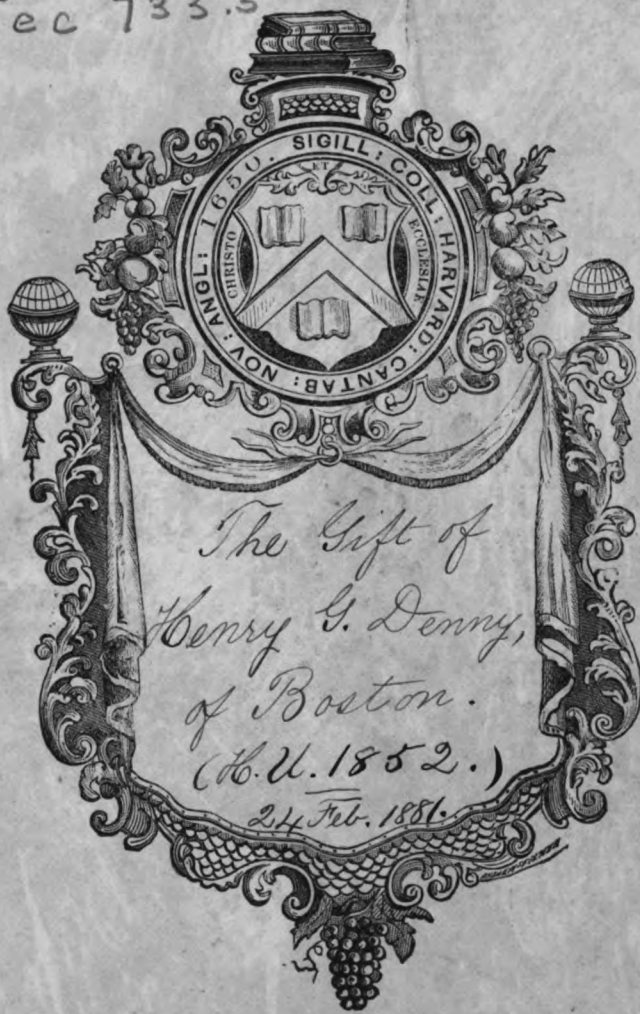 ec 733.5
SIGILL: COLL: HARVARD: CANTAB: NOV: ANGL: 1650.
ET
CHRISTO
ECCLESIAE
The Gift of
Henry G. Denny,
of Boston.
(H. U. 1852.)
24 Feb. 1881.